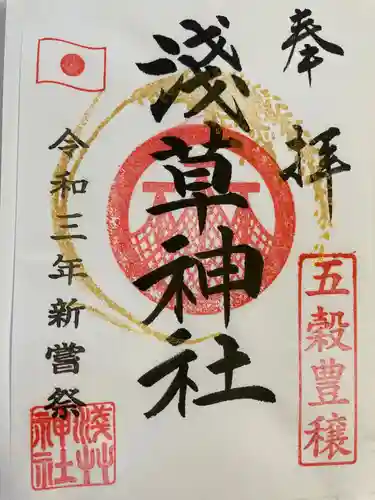 奉拝
五穀豊穣
淺草神社
令和三年新嘗祭
淺草神社